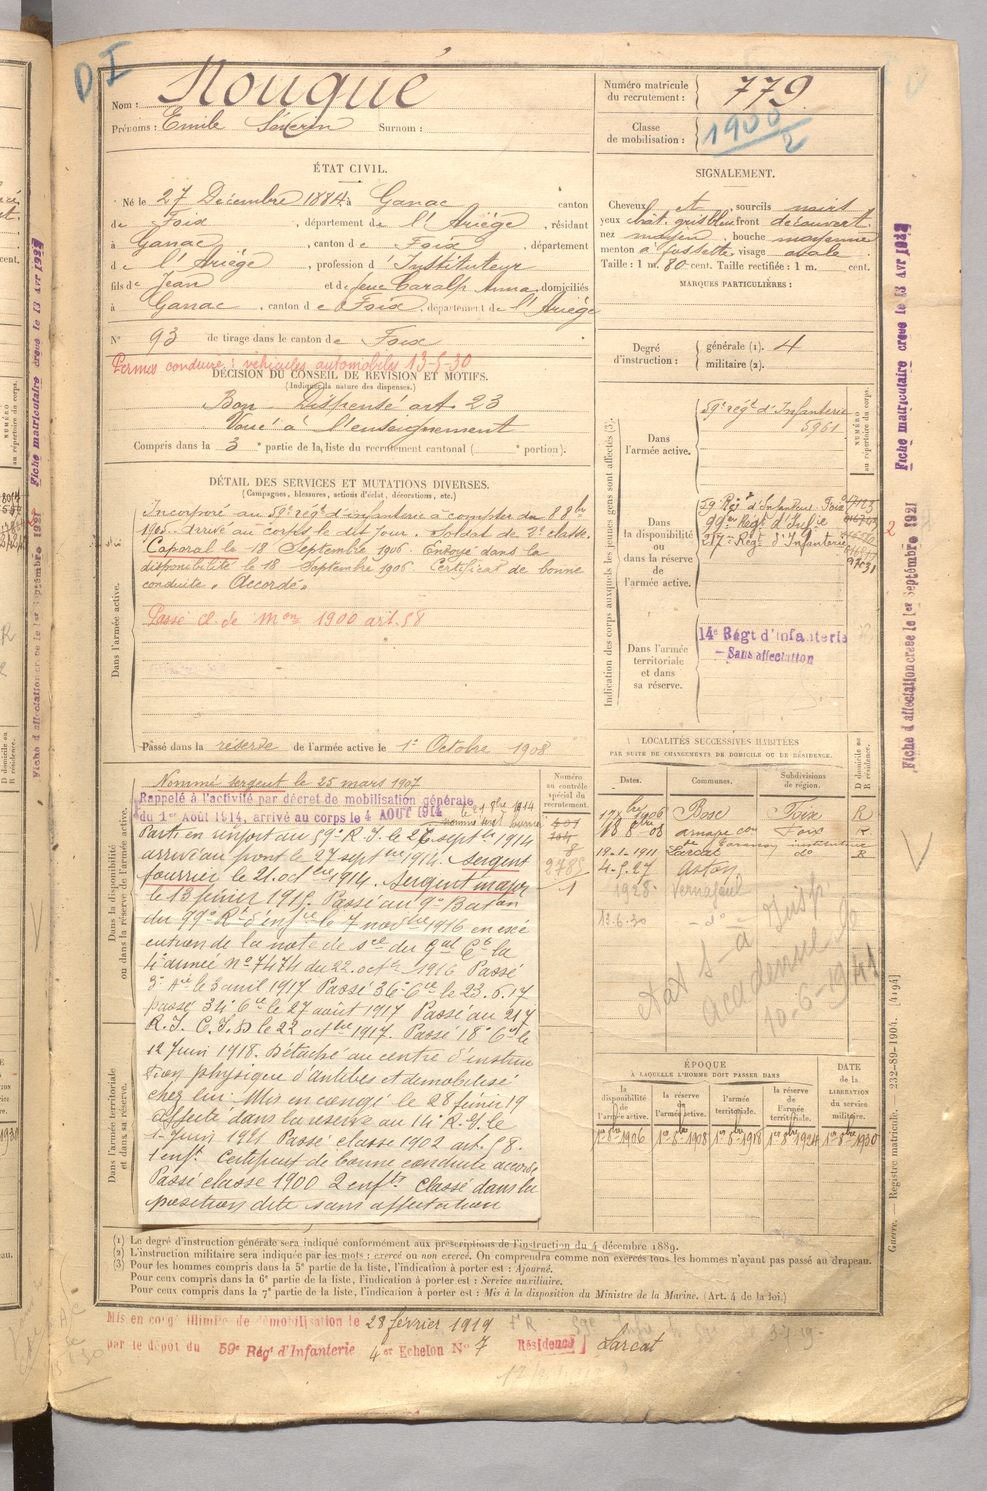 D I
Nom : Rouqué
Prénoms : Emile Séverin Surnom :
Numéro matricule du recrutement : 779
Classe de mobilisation : 1900/2
ÉTAT CIVIL.
Né le 27 Décembre 1884 à Ganac canton
de Foix, département de l'Ariège, résidant
à Ganac, canton de Foix, département
de l'Ariège, profession d'Instituteur
fils de Jean et de feue Caralp Anna, domiciliés
à Ganac, canton de Foix, département de l'Ariège
N° 93 de tirage dans le canton de Foix
Permis conduire : véhicules automobiles 13-5-30
SIGNALEMENT.
Cheveux et, sourcils noirs
yeux chât. gris bleu front découvert
nez moyen, bouche moyenne
menton à fossette, visage ovale
Taille : 1 m. 80 cent. Taille rectifiée : 1 m. cent.
MARQUES PARTICULIÈRES :
Degré d'instruction : générale (1). 4
militaire (2).
DÉCISION DU CONSEIL DE RÉVISION ET MOTIFS.
(Indiquer la nature des dispenses.)
Bon - Dispensé art. 23
Voué à l'enseignement
Compris dans la 3e partie de la liste du recrutement cantonal ( e portion).
DÉTAIL DES SERVICES ET MUTATIONS DIVERSES.
(Campagnes, blessures, actions d'éclat, décorations, etc.)
Dans l'armée active.
Incorporé au 59e régt d'infanterie à compter du 8 8bre
1905. Arrivé au corps le dit jour. Soldat de 2e classe.
Caporal le 18 Septembre 1906. Envoyé dans la
disponibilité le 18 Septembre 1906. Certificat de bonne
conduite « Accordé »
Passé cl. de Mon 1900 art. 58
Passé dans la réserve de l'armée active le 1er Octobre 1908
Dans la disponibilité ou dans la réserve de l'armée active.
Nommé sergent le 25 mars 1907
Rappelé à l'activité par décret de mobilisation générale
du 1er Août 1914, arrivé au corps le 4 AOUT 1914
Parti en renfort au 59e R.I. le 26 septbre 1914
arrivé au front le 27 septbre 1914. Sergent
fourrier le 21 octbre 1914. Sergent major
le 13 février 1915. Passé au 9e Baton
du 99e Rt d'infrie le 7 novbre 1916 en exé
cution de la note de sce du Gal Ct la
4e armée n° 7474 du 22 octbre 1916 Passé
3e Cie le 3 avril 1917 Passé 36e Cie le 23.6.17
passé 34e Cie le 27 août 1917 Passé au 217
R.I. C.I.D le 22 octbre 1917. Passé 18e Cie le
12 Juin 1918. Détaché au centre d'instruc
tion physique d'Antibes et démobilisé
chez lui. Mis en congé le 28 février 19
affecté dans la réserve au 14e R.I. le
1er Juin 1921 Passé classe 1902 art. 58.
1 enft. Certificat de bonne conduite accordé
Passé classe 1900 2 enfts Classé dans la
position dite sans affectation
Dans l'armée territoriale et dans sa réserve.
Numéro au contrôle spécial du recrutement.
2785
1
Indication des corps auxquels les jeunes gens sont affectés (3)
NUMÉRO au répertoire du corps.
Dans l'armée active. 59e régt d'Infanterie 5961
Dans la disponibilité ou dans la réserve de l'armée active.
59 Régt d'Infanterie Foix
99e Régt d'Infie
217e Régt d'Infanterie
Dans l'armée territoriale et dans sa réserve.
14e Régt d'infanterie
- Sans affectation
LOCALITÉS SUCCESSIVES HABITÉES
PAR SUITE DE CHANGEMENTS DE DOMICILE OU DE RÉSIDENCE.
Dates. Communes. Subdivisions de région. D domicile ou R résidence.
17 8bre 1906 Bosc Foix R
18 8bre 08 Foix R
19-1-1911 Larcat do R
4-5-27 Aston
1928 Vernajoul
13.6.30 - do -
10-6-1941
ÉPOQUE
À LAQUELLE L'HOMME DOIT PASSER DANS
la disponibilité de l'armée active. la réserve de l'armée active. l'armée territoriale. la réserve de l'armée territoriale. DATE de la LIBÉRATION du service militaire.
1er 8bre 1906 1er 8bre 1908 1er 8bre 1918 1er 8bre 1924 1er 8bre 1930
(1) Le degré d'instruction générale sera indiqué conformément aux prescriptions de l'instruction du 4 décembre 1889.
(2) L'instruction militaire sera indiquée par les mots : exercé ou non exercé. On comprendra comme non exercés tous les hommes n'ayant pas passé au drapeau.
(3) Pour les hommes compris dans la 5e partie de la liste, l'indication à porter est : Ajourné.
Pour ceux compris dans la 6e partie de la liste, l'indication à porter est : Service auxiliaire.
Pour ceux compris dans la 7e partie de la liste, l'indication à porter est : Mis à la disposition du Ministre de la Marine. (Art. 4 de la loi.)
Mis en congé illimité de démobilisation le 28 février 1919
par le dépôt du 59e Régt d'Infanterie 4er Echelon N° 7 Résidence Larcat
Fiche matriculaire créée le 13 Avr 192
Fiche d'affectation créée le 1er Septembre 1921
Guerre. — Registre matricule. 232-89-1904. [4194]